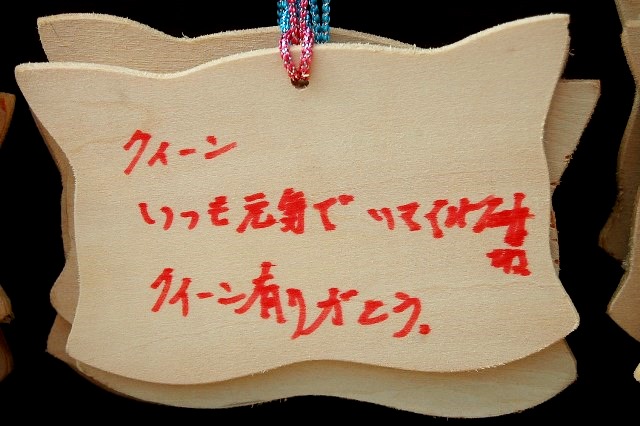 クィーン
いつも元気でいてね
クィーン有りがとう。